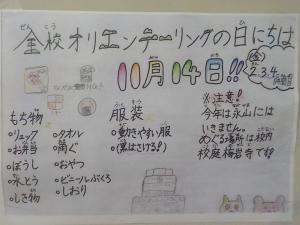 全校オリエンテーリングの日にちは
11月14日!!
(金)
2.3.4
もち物
・リュック
・お弁当
・ぼうし
・水とう
・しき物
・タオル
・おやつ
・ビニールぶくろ
・しおり
服装
・動きやすい服
・(黒はさける!)
※注意!
今年は永山には
いきません。
めぐる場所は校内
校庭梅岩寺です